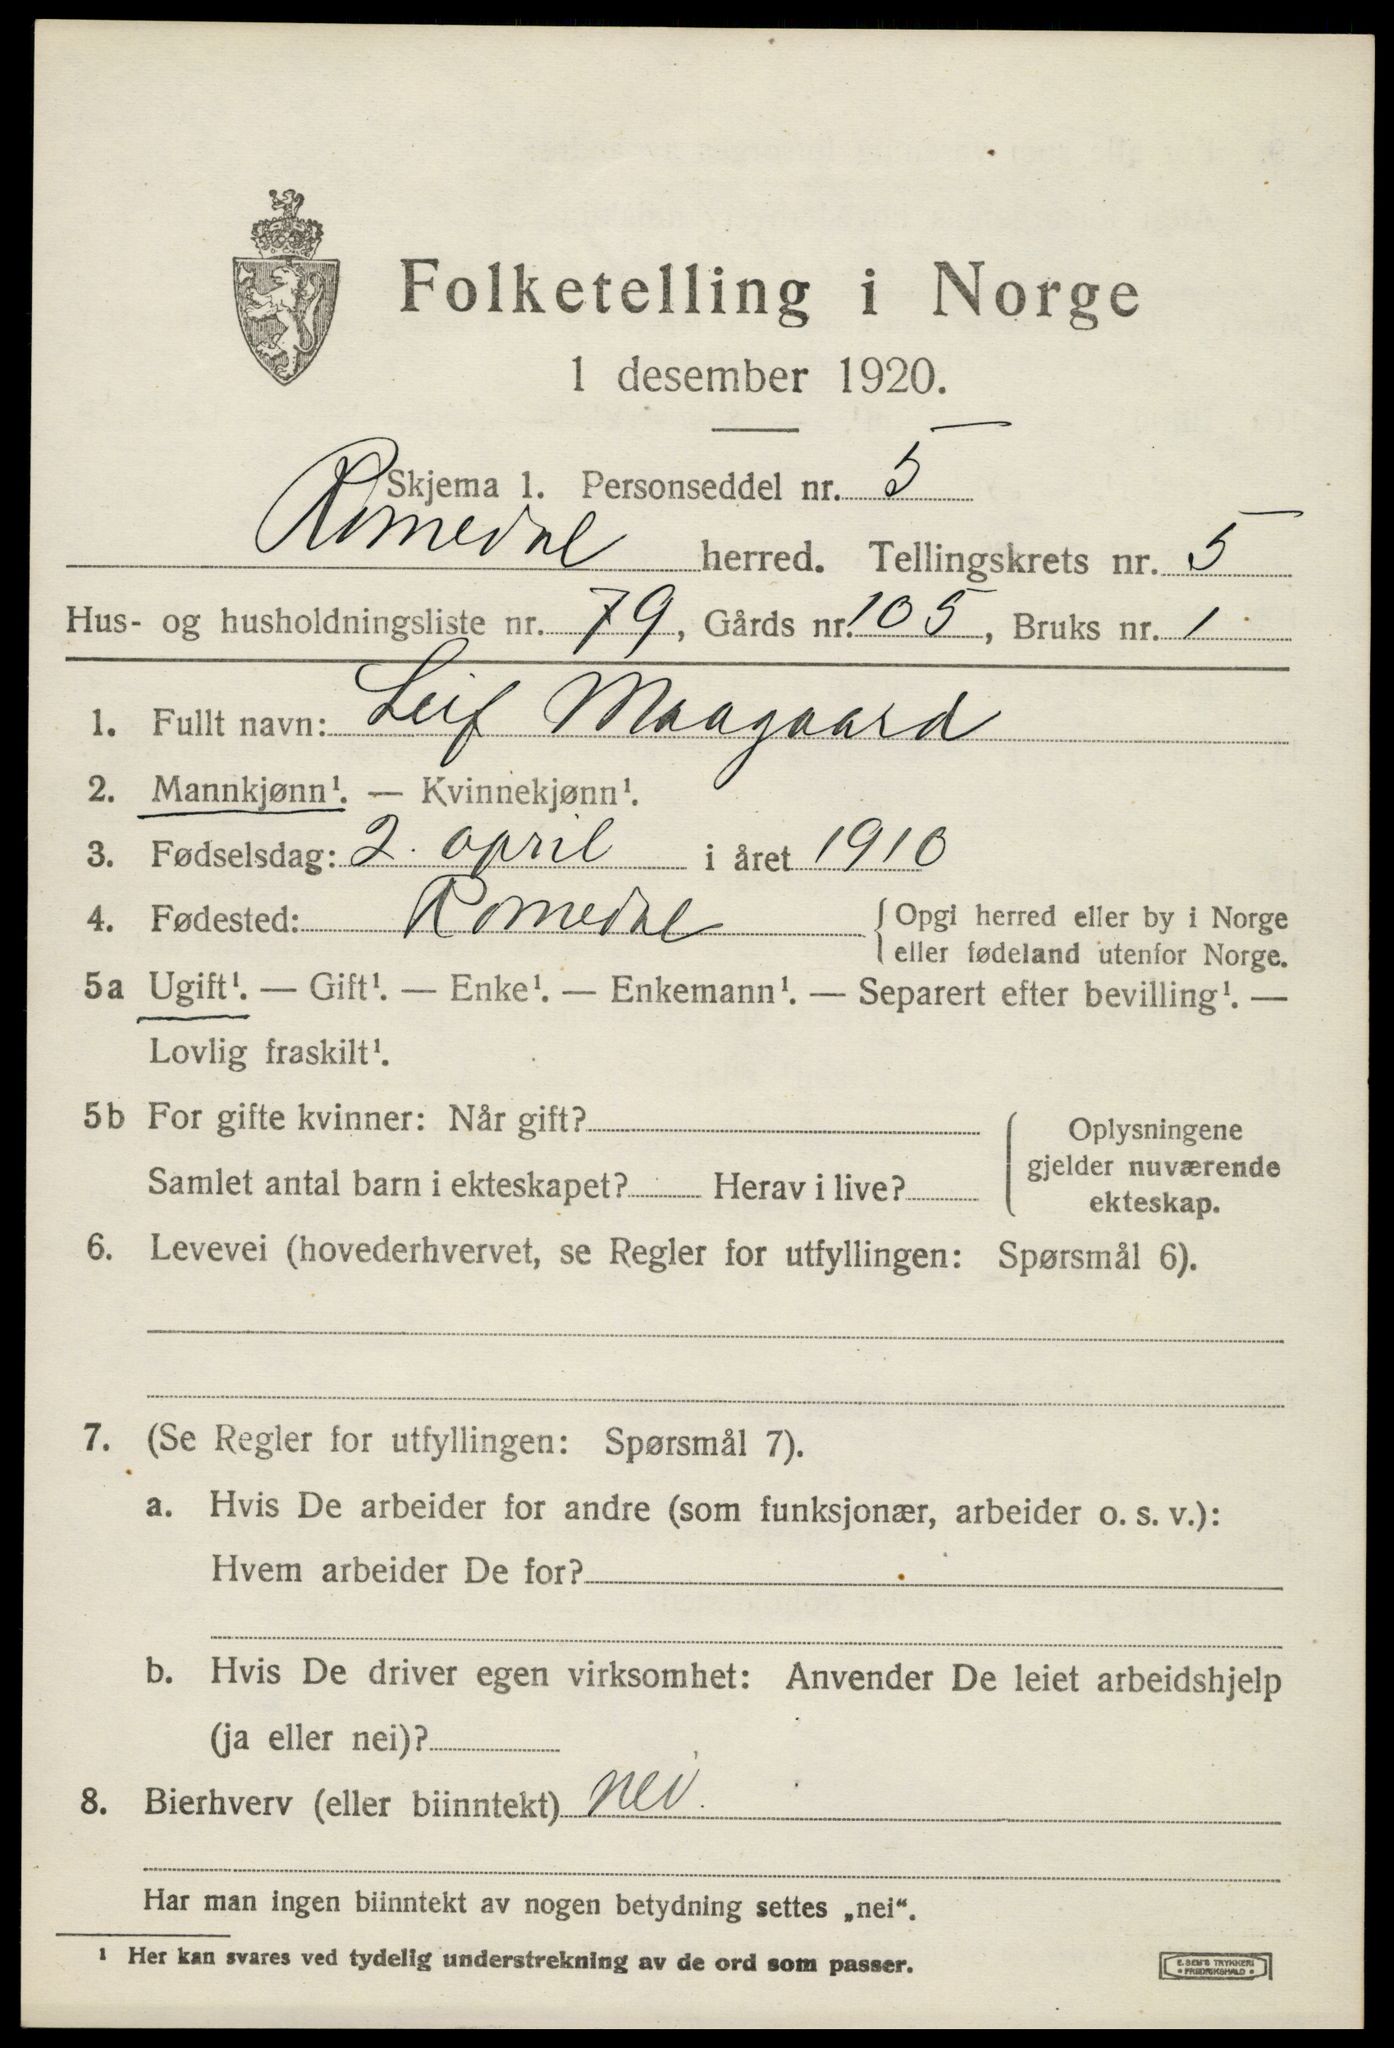 Folketelling i Norge
1 desember 1920.
Skjema 1. Personseddel nr. 5
Romedal herred. Tellingskrets nr. 5
Hus- og husholdningsliste nr. 79, Gårds nr. 105, Bruks nr. 1
1. Fullt navn: Leif Maagaard
2. Mannkjønn¹. — Kvinnekjønn¹.
3. Fødselsdag: 2. april i året 1910
4. Fødested: Romedal {Opgi herred eller by i Norge
eller fødeland utenfor Norge.
5a Ugift¹. — Gift¹. — Enke¹. — Enkemann¹. — Separert efter bevilling¹. —
Lovlig fraskilt¹.
5b For gifte kvinner: Når gift?
Samlet antal barn i ekteskapet? Herav i live?
Oplysningene
gjelder nuværende
ekteskap.
6. Levevei (hovederhvervet, se Regler for utfyllingen: Spørsmål 6).
7. (Se Regler for utfyllingen: Spørsmål 7).
a. Hvis De arbeider for andre (som funksjonær, arbeider o. s. v.):
Hvem arbeider De for?
b. Hvis De driver egen virksomhet: Anvender De leiet arbeidshjelp
(ja eller nei)?
8. Bierhverv (eller biinntekt) nei.
Har man ingen biinntekt av nogen betydning settes „nei“.
¹ Her kan svares ved tydelig understrekning av de ord som passer.
E. SEM'S TRYKKERI
• FREDRIKSHALD •